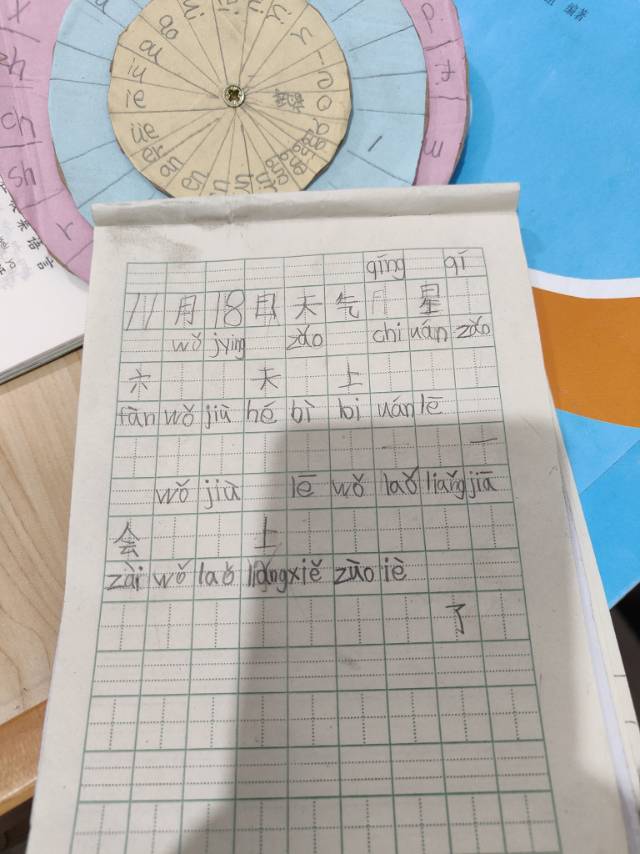 编著
ao
ou
iu
ie
üe
er
an
en
zh
ch
sh
r
语言
qīng qī
11月18日天气月星
wǒ jying zǎo chi uán zǎo
六 天 上
fàn wǒ jiù hé bì bi uán lē
一
wǒ jiù lē wǒ laǒ liǎng jiā
会 上
zài wǒ laǒ liǎng xiě zùo iè
了